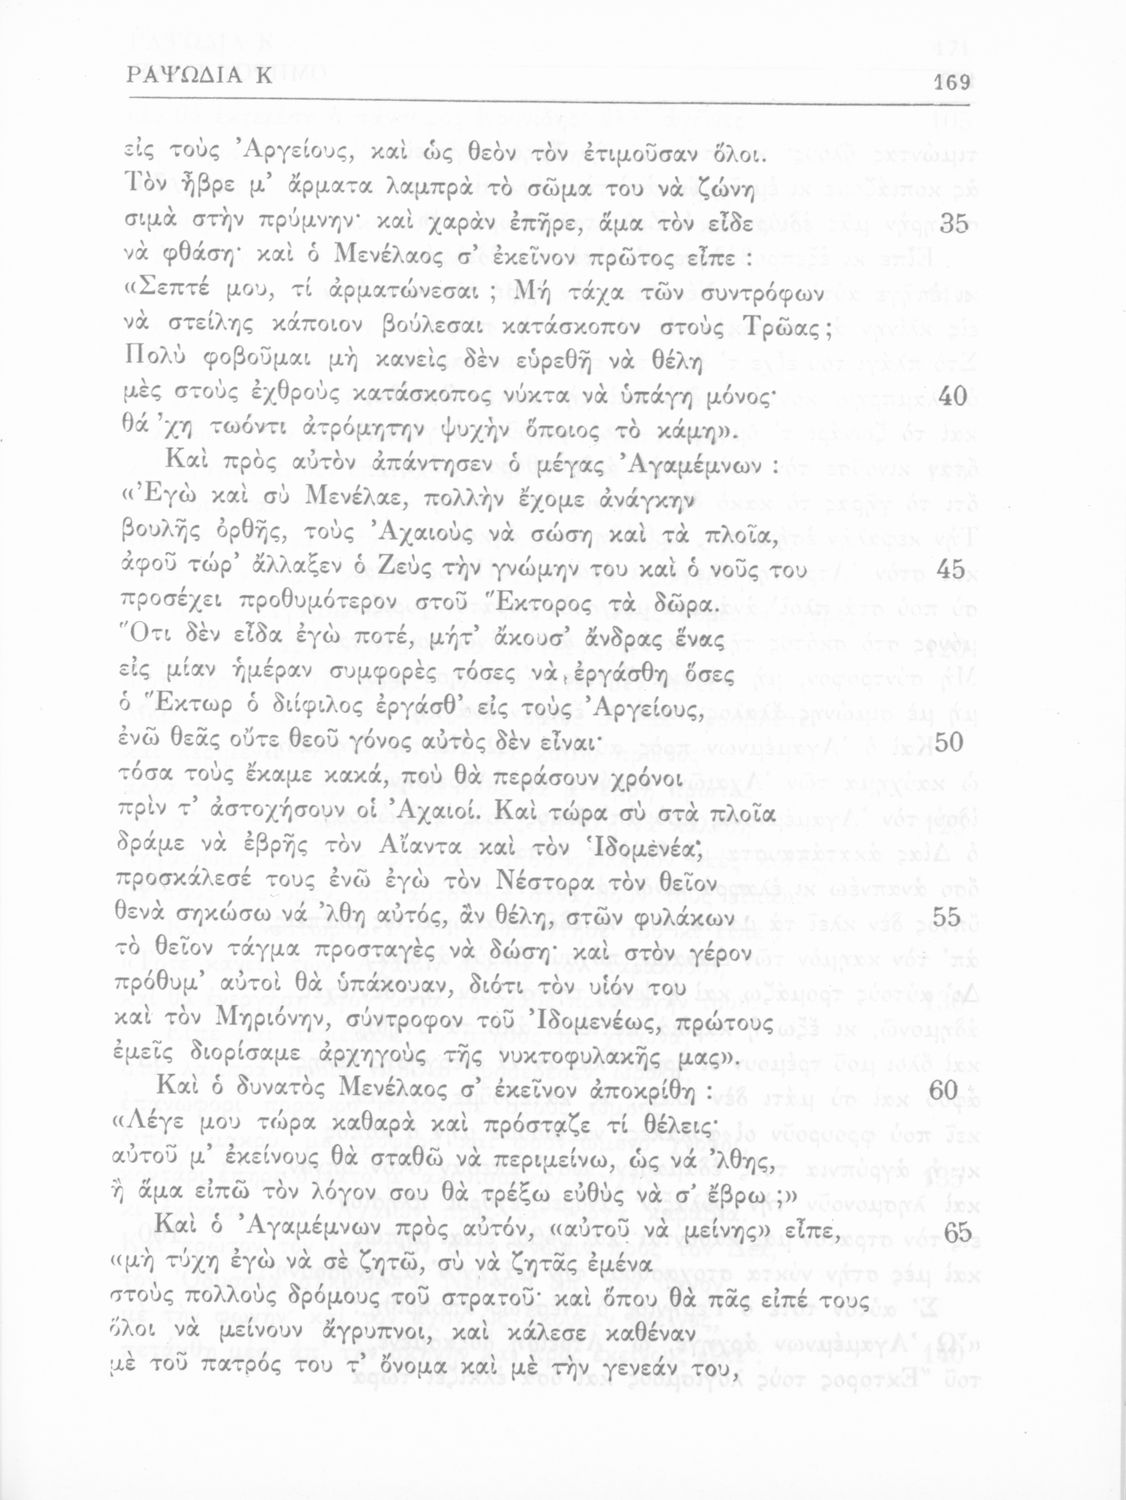 ΡΑΨΩΔΙΑ Κ 169
εἰς τοὺς Ἀργείους, καὶ ὡς θεὸν τὸν ἐτιμοῦσαν ὅλοι.
Τὸν ἦβρε μ’ ἅρματα λαμπρὰ τὸ σῶμα του νὰ ζώνη
σιμὰ στὴν πρύμνην· καὶ χαρὰν ἐπῆρε, ἅμα τὸν εἶδε 35
νὰ φθάση· καὶ ὁ Μενέλαος σ’ ἐκεῖνον πρῶτος εἶπε :
«Σεπτέ μου, τί ἀρματώνεσαι ; Μή τάχα τῶν συντρόφων
νὰ στείλης κάποιον βούλεσαι κατάσκοπον στοὺς Τρῶας ;
Πολὺ φοβοῦμαι μὴ κανεὶς δὲν εὑρεθῆ νὰ θέλη
μὲς στοὺς ἐχθροὺς κατάσκοπος νύκτα νὰ ὑπάγη μόνος· 40
θά ’χη τωόντι ἀτρόμητην ψυχὴν ὅποιος τὸ κάμη».
Καὶ πρὸς αὐτὸν ἀπάντησεν ὁ μέγας Ἀγαμέμνων :
«Ἐγὼ καὶ σὺ Μενέλαε, πολλὴν ἔχομε ἀνάγκην
βουλῆς ὀρθῆς, τοὺς Ἀχαιοὺς νὰ σώση καὶ τὰ πλοῖα,
ἀφοῦ τώρ’ ἄλλαξεν ὁ Ζεὺς τὴν γνώμην του καὶ ὁ νοῦς του 45
προσέχει προθυμότερον στοῦ Ἕκτορος τὰ δῶρα.
Ὅτι δὲν εἶδα ἐγὼ ποτέ, μήτ’ ἄκουσ’ ἄνδρας ἕνας
εἰς μίαν ἡμέραν συμφορὲς τόσες νὰ ἐργάσθη ὅσες
ὁ Ἕκτωρ ὁ διίφιλος ἐργάσθ’ εἰς τοὺς Ἀργείους,
ἐνῶ θεᾶς οὔτε θεοῦ γόνος αὐτὸς δὲν εἶναι· 50
τόσα τοὺς ἔκαμε κακά, ποὺ θὰ περάσουν χρόνοι
πρὶν τ’ ἀστοχήσουν οἱ Ἀχαιοί. Καὶ τώρα σὺ στὰ πλοῖα
δράμε νὰ ἐβρῆς τὸν Αἴαντα καὶ τὸν Ἰδομενέα·
προσκάλεσέ τους ἐνῶ ἐγὼ τὸν Νέστορα τὸν θεῖον
θενὰ σηκώσω νά ’λθη αὐτός, ἂν θέλη, στῶν φυλάκων 55
τὸ θεῖον τάγμα προσταγὲς νὰ δώση· καὶ στὸν γέρον
πρόθυμ’ αὐτοὶ θὰ ὑπάκουαν, διότι τὸν υἱόν του
καὶ τὸν Μηριόνην, σύντροφον τοῦ Ἰδομενέως, πρώτους
ἐμεῖς διορίσαμε ἀρχηγοὺς τῆς νυκτοφυλακῆς μας».
Καὶ ὁ δυνατὸς Μενέλαος σ’ ἐκεῖνον ἀποκρίθη : 60
«Λέγε μου τώρα καθαρὰ καὶ πρόσταζε τί θέλεις·
αὐτοῦ μ’ ἐκείνους θὰ σταθῶ νὰ περιμείνω, ὡς νά ’λθης,
ἢ ἅμα εἰπῶ τὸν λόγον σου θὰ τρέξω εὐθὺς νὰ σ’ ἔβρω ;»
Καὶ ὁ Ἀγαμέμνων πρὸς αὐτόν, «αὐτοῦ νὰ μείνης» εἶπε, 65
«μὴ τύχη ἐγὼ νὰ σὲ ζητῶ, σὺ νὰ ζητᾶς ἐμένα
στοὺς πολλοὺς δρόμους τοῦ στρατοῦ· καὶ ὅπου θὰ πᾶς εἰπέ τους
ὅλοι νὰ μείνουν ἄγρυπνοι, καὶ κάλεσε καθέναν
μὲ τοῦ πατρός του τ’ ὄνομα καὶ μὲ τὴν γενεάν του,